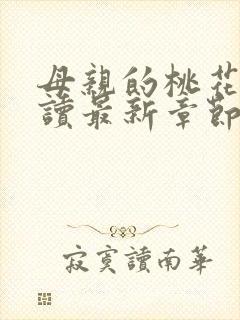 母親的桃花
讀最新章節
寂寞讀南華